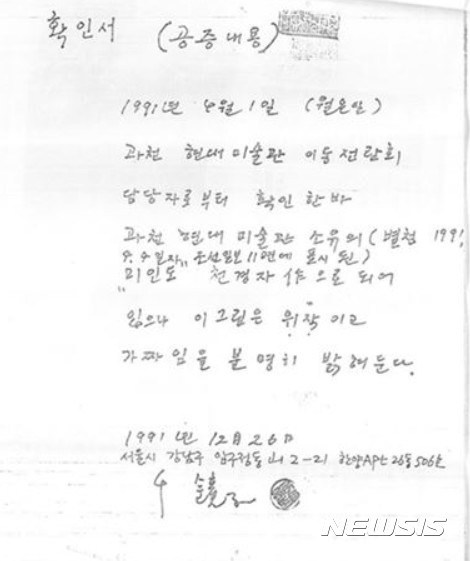 확인서 (공증내용)
1991년 4월 1일 (월요일)
과천 현대미술관 이동전람회
담당자로부터 확인한바
과천 현대미술관 소유의 (별첨 1991,
조선일보 11면에 표시된)
"미인도" 천경자 作으로 되어
있으나 이그림은 위작이고
가짜임을 분명히 밝혀둔다.
1991년 12月 26日
서울시 강남구 압구정동 산 2-21 한양APT 26동 506호
NEWSIS